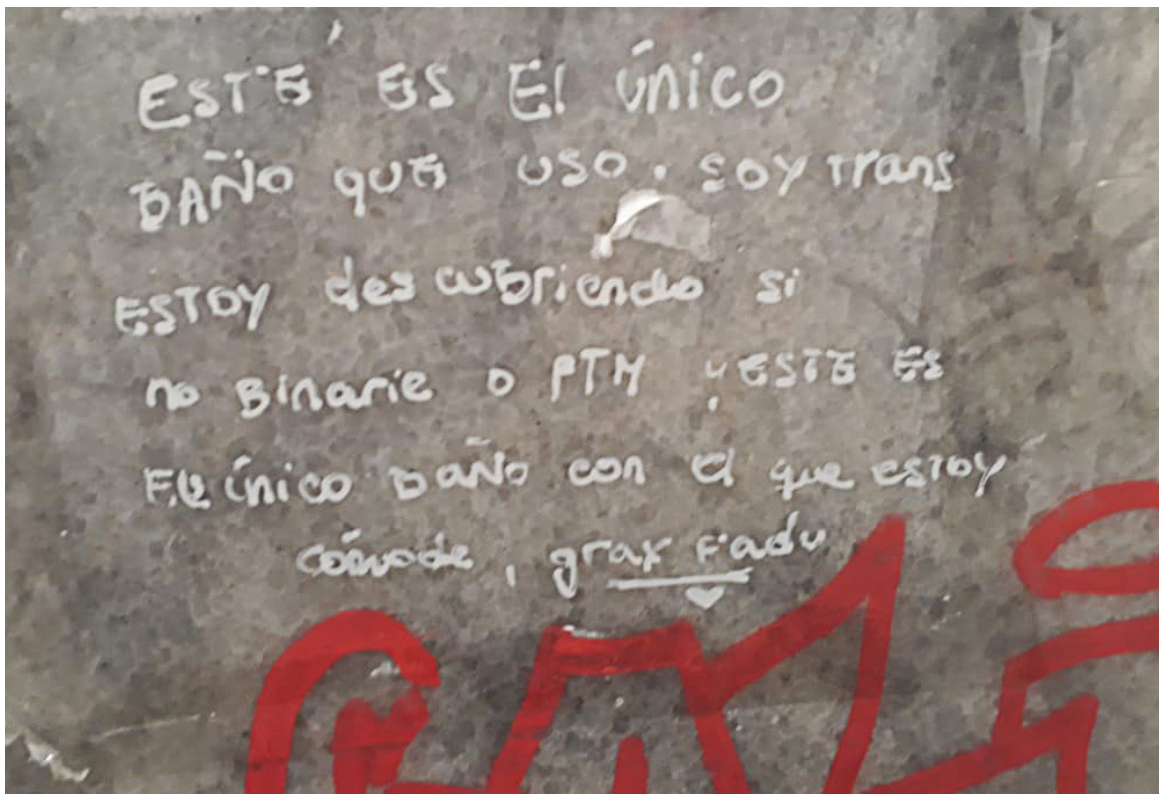 ESTE ES El ÚNICO
BAÑO QUE USO. SOY Trans
ESTOY descubriendo si
no Binarie o FTM y ESTE ES
EL único BAÑO con el que ESTOY
cómode, grax Fadu